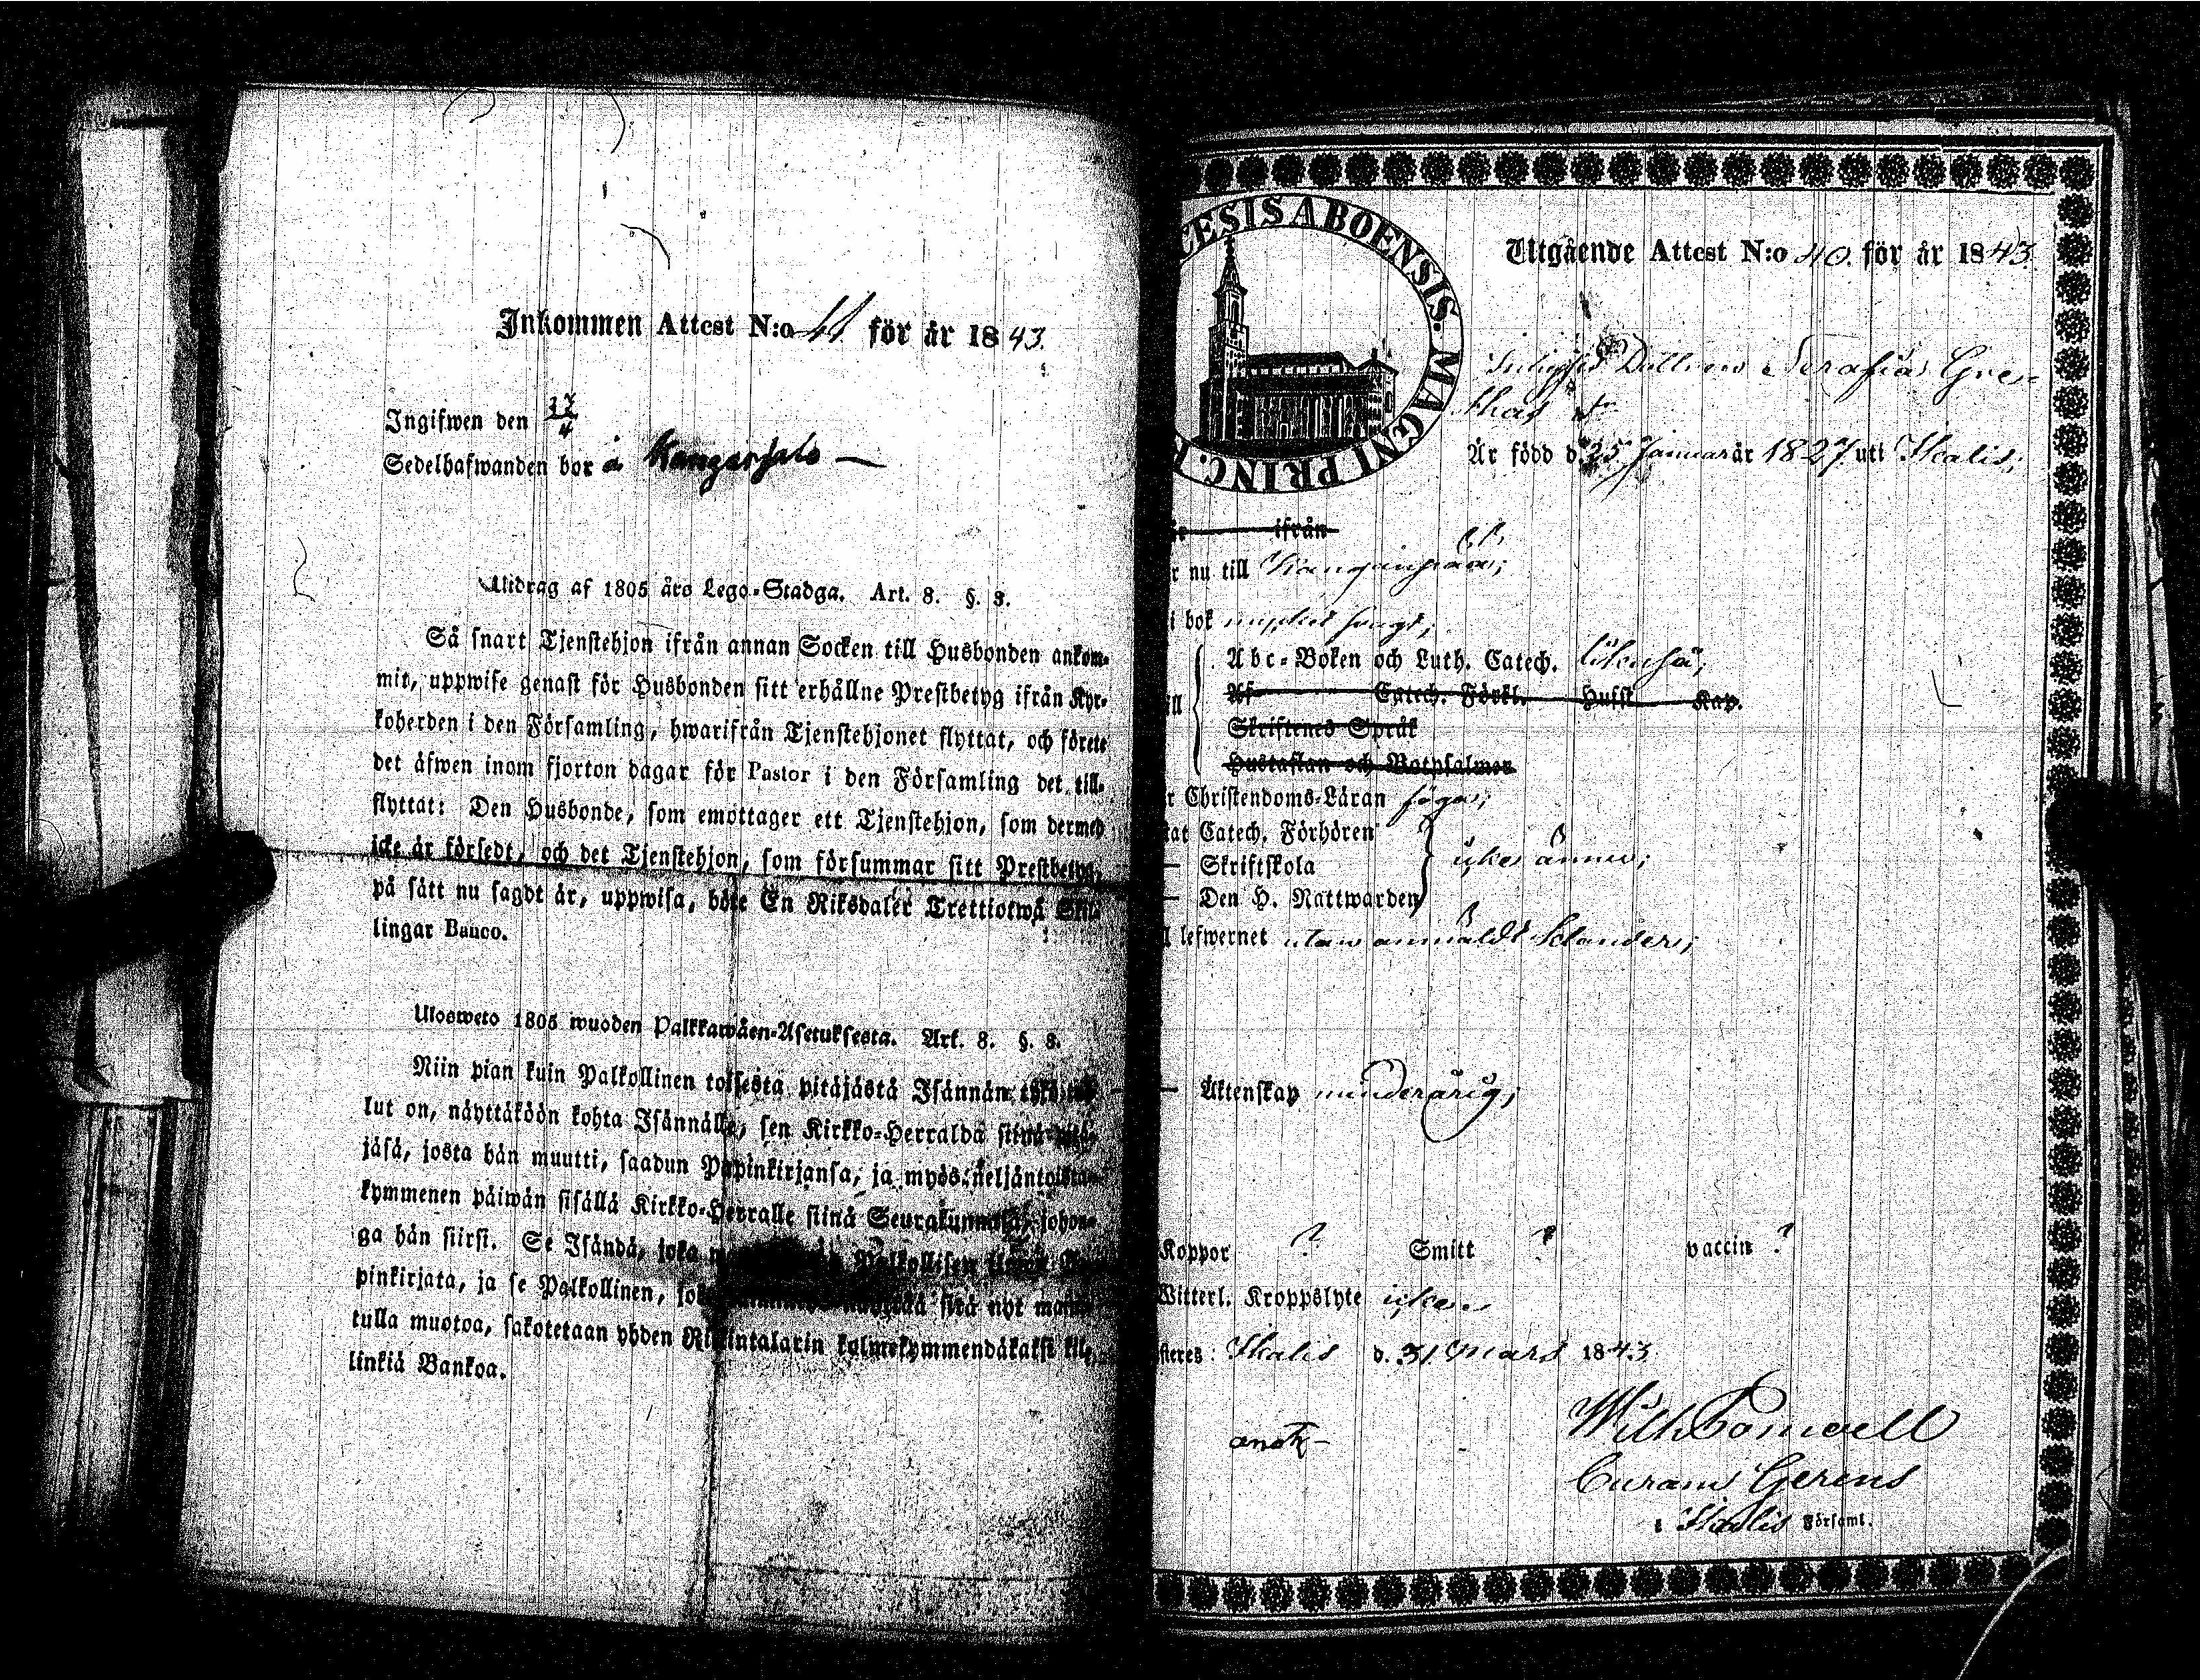 Inkommen Attest N:o 41 för år 1843.
Ingifwen den 17/4
Sedelhafwanden bor å Kangarsalo —
Utdrag af 1805 års Lego-Stadga. Art. 8. §. 3.
Så snart Tjenstehjon ifrån annan Socken till Husbonden ankom-
mit, uppwise genast för Husbonden sitt erhållne Prestbetyg ifrån Kyr-
koherden i den Församling, hwarifrån Tjenstehjonet flyttat, och förete
det äfwen inom fjorton dagar för Pastor i den Församling det till-
flyttat: Den Husbonde, som emottager ett Tjenstehjon, som dermed
icke är försedt, och det Tjenstehjon, som försummar sitt Prestbetyg,
på sätt nu sagdt är, uppwisa, böte En Riksdaler Trettiotwå Skil-
lingar Banco.
Ulosweto 1805 wuoden Palkkawäen-Asetuksesta. Art. 8. §. 3.
Niin pian kuin Palkollinen toisesta pitäjästä Isännän tykö
lut on, näyttäköön kohta Isännälle, sen Kirkko-Herralda siinä
jäsä, josta hän muutti, saadun Papinkirjansa, ja myös neljäntoista-
kymmenen päiwän sisällä Kirkko-Herralle siinä Seurakunnasa, johon-
ga hän siirsi. Se Isändä, joka Palkollisen
pinkirjata, ja se Palkollinen, sitä nyt
tulla muotoa, sakotetaan yhden Riikintalarin kolmekymmendäkaksi kil-
linkiä Bankoa.
CESIS ABOENSIS. MAGNI PRINC.
Utgående Attest N:o 40. för år 1843.
Serafia
Är född d. 25 Januari år 1827 uti Ikalis;
ifrån
r nu till
i bok
Abc-Boken och Luth. Catech. likaså;
Af Catech. Förkl. Husst Kap.
Skriftenes Språk
Hustaflan och Botpsalmer
r Christendoms-Läran föga;
tat Catech. Förhören
— Skriftskola icke ännu;
— Den H. Nattwarden
l lefwernet utan anmäldt Sclander;
— Äktenskap minderårig;
Koppor ? Smitt ? vaccin ?
Witterl. Kroppslyte icke
steres: Ikalis d. 31 Mars 1843.
Curam Gerens
i Ikalis Församl.